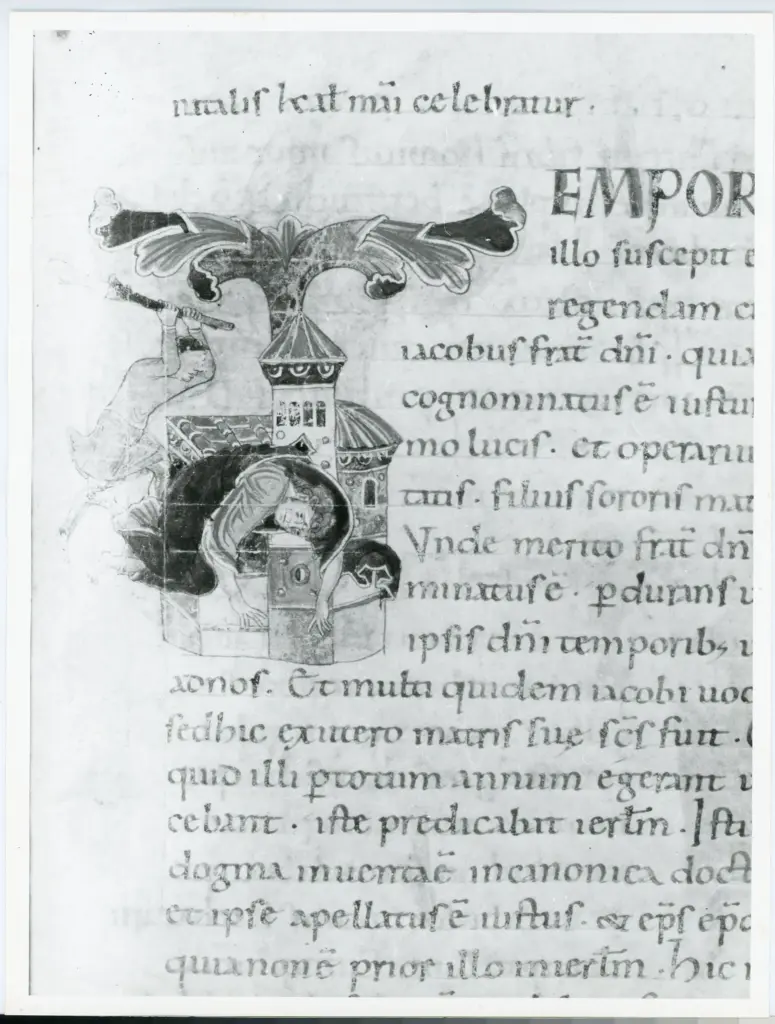 natalis kat maii celebratur.
TEMPOR
illo suscepit e
regendam
iacobus frat̄ dn̄i. quia
cognominatus ē iustu
mo lucis. et operariu
tatis. filius sororis mat
Vnde merito frat̄ dn̄
minatus ē. p̄durans u
ipsis dn̄i temporib; u
adnos. Et multi quidem iacobi uoc
sed hic ex utero matris suę sc̄s fuit.
quid illi p̄ totum annum egerant
cebant. iste predicabit ierl̄m. Isti
dogma inuentā ē in canonica doct
et ipse apellatus ē iustus. ep̄s
quia non ē prior illo in ierl̄m. Hic